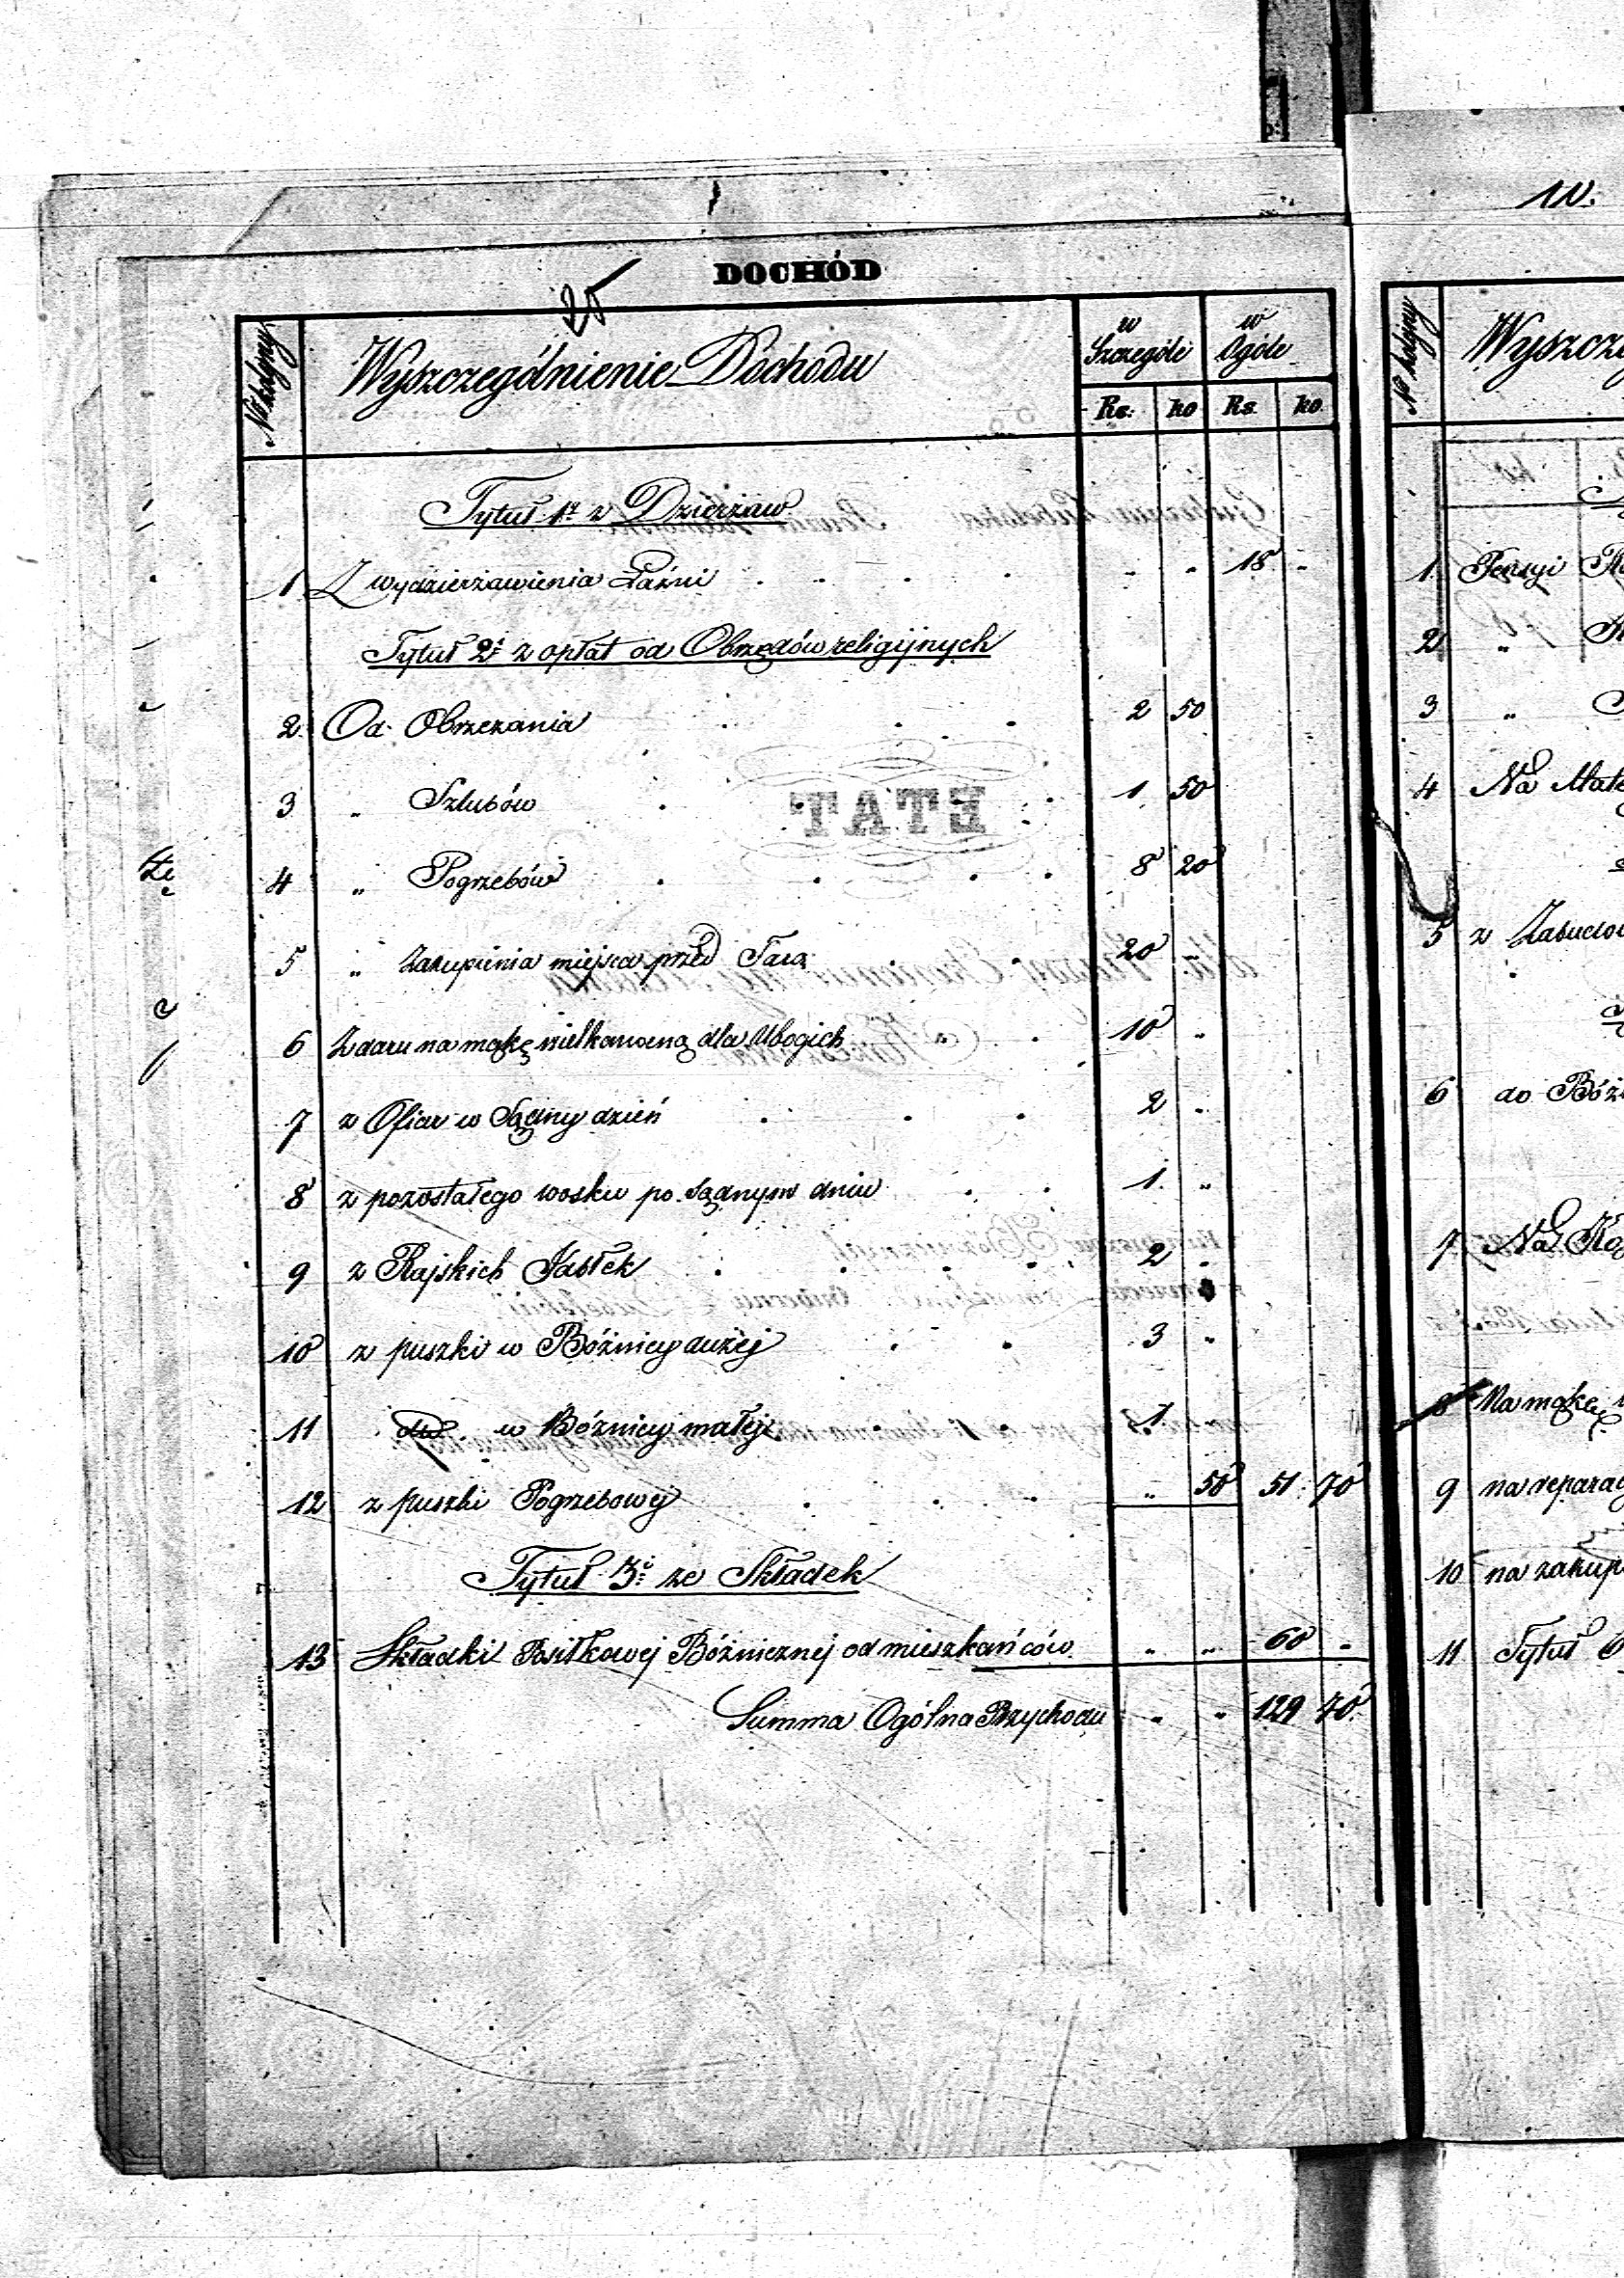 11.
DOCHÓD
25
No kolejny
Wyszczególnienie Dochodu
w Szczególe
w Ogóle
Rs. ko Rs. ko.
Tytuł 1t z Dzierżaw
1 Z wydzierżawienia Łaźni . . . . „ „ 18 „
Tytuł 2i z opłat od Obrzędów religijnych
2. Od Obrzezania . . . 2 50
3 „ Szlubów . . . 1 50
4 „ Pogrzebów . . . . 8 20
5 „ Zakupienia miejsca przed Torą 20
6 Z daru na mąkę wielkanocną dla Ubogich 10 „
7 z Ofiar w Sądny dzień . . . 2 „
8 z pozostałego wosku po Sądnym dniu . . 1. „
9 z Rajskich Jabłek . . . . 2 „
10 z puszki w Bóżnicy dużej . . 3 „
11 dto. w Bóżnicy małej . . 1 „
12 z puszki Pogrzebowej . . . „ 50 51 70
Tytuł 3i ze Składek
13 Składki Posiłkowej Bóżnicznej od mieszkańców „ „ 60 „
Summa Ogólna Przychodu „ „ 129 70.
No kolejny
Wyszcze
1. Pensyi
2 „
3 „
4 Na
5 z Zabudow
6 do Bóż
7. Na
8 Na mąkę
9 na reparac
10 na zakup
11 Tytuł
ETAT